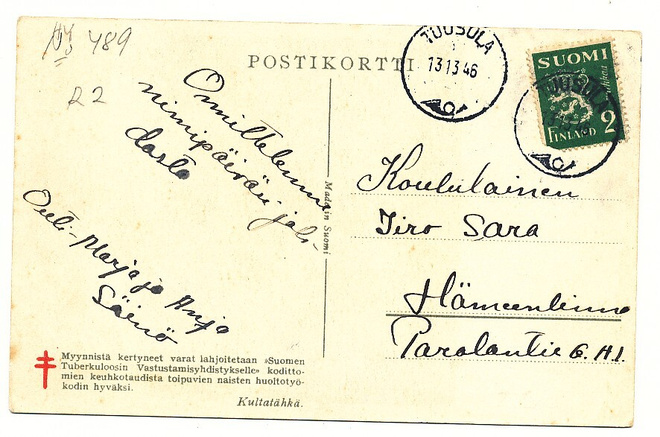 489
R2
POSTIKORTTI
TUUSULA
13 13 46
SUOMI
FINLAND 2
TUUSULA
Onnittelemme
nimipäivän joh-
dosta
Outi-Marja ja Anja
Made in Suomi
Koululainen
Iiro Sara
Hämeenlinna
Parolantie 6. A1.
Myynnistä kertyneet varat lahjoitetaan »Suomen
Tuberkuloosin Vastustamisyhdistykselle» koditto-
mien keuhkotaudista toipuvien naisten huoltotyö-
kodin hyväksi.
Kultatähkä.